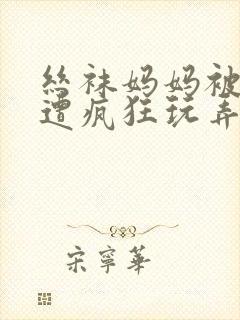 丝袜妈妈被
遭疯狂玩弄
宋寧華